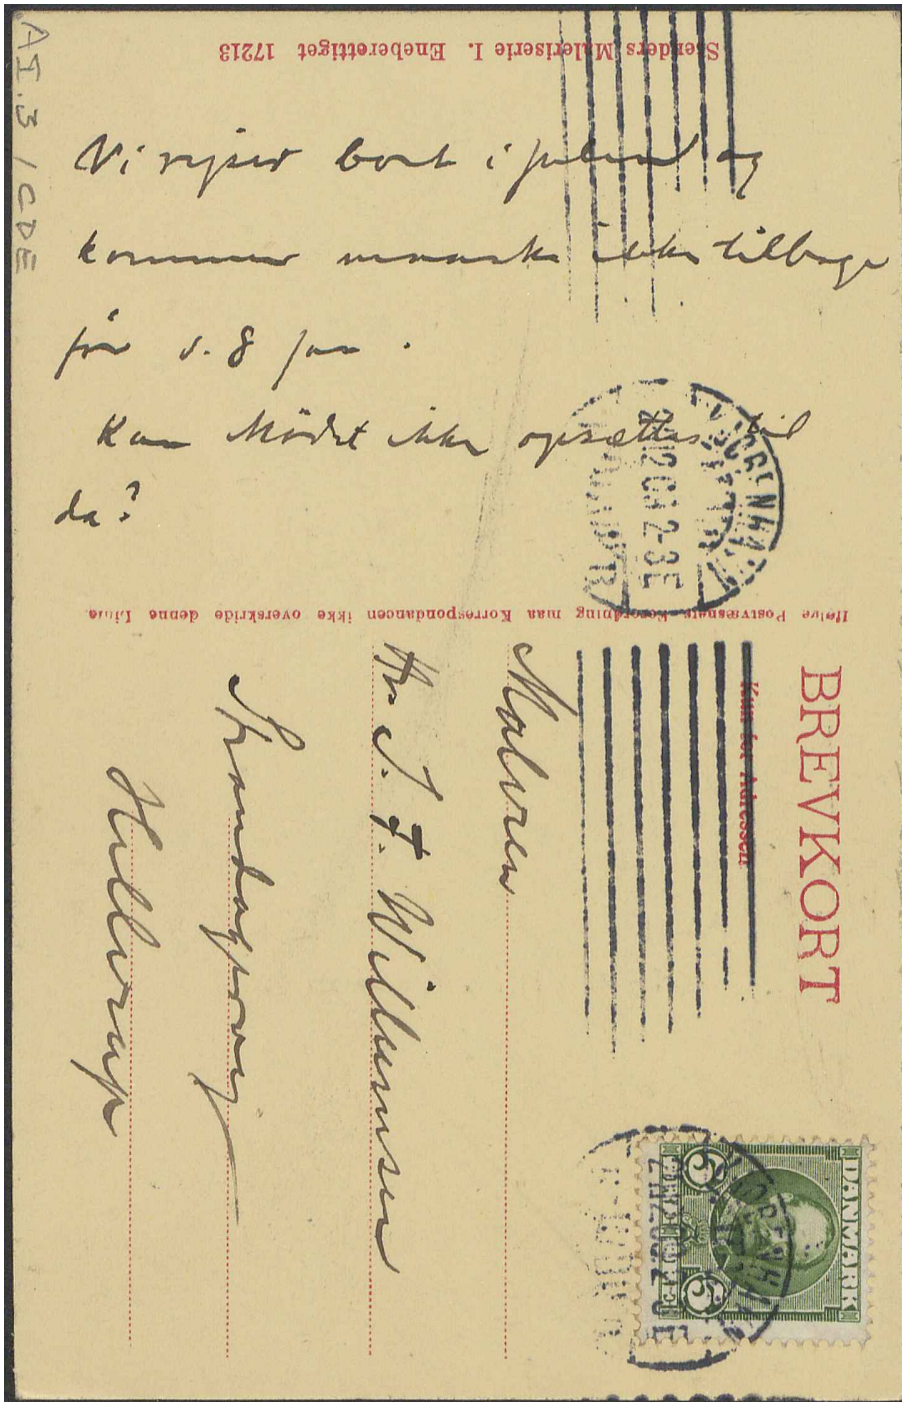 AI.3 / CDE
Stenders Maleriserie I. Eneberettiget 17213
Vi rejser bort i julen og
kommer maaske ikke tilbage
før d. 8 jan.
Kan Mödet ikke opsættes til
da?
Ifølge Postvæsnets Forordning maa Korrespondancen ikke overskride denne Linie
BREVKORT
Kun for Adressen
Maleren
Hr J. F. Willumsen
Strandagervej
Hellerup
DANMARK
5 5
KJØBENHAVN
12.08 2-3E